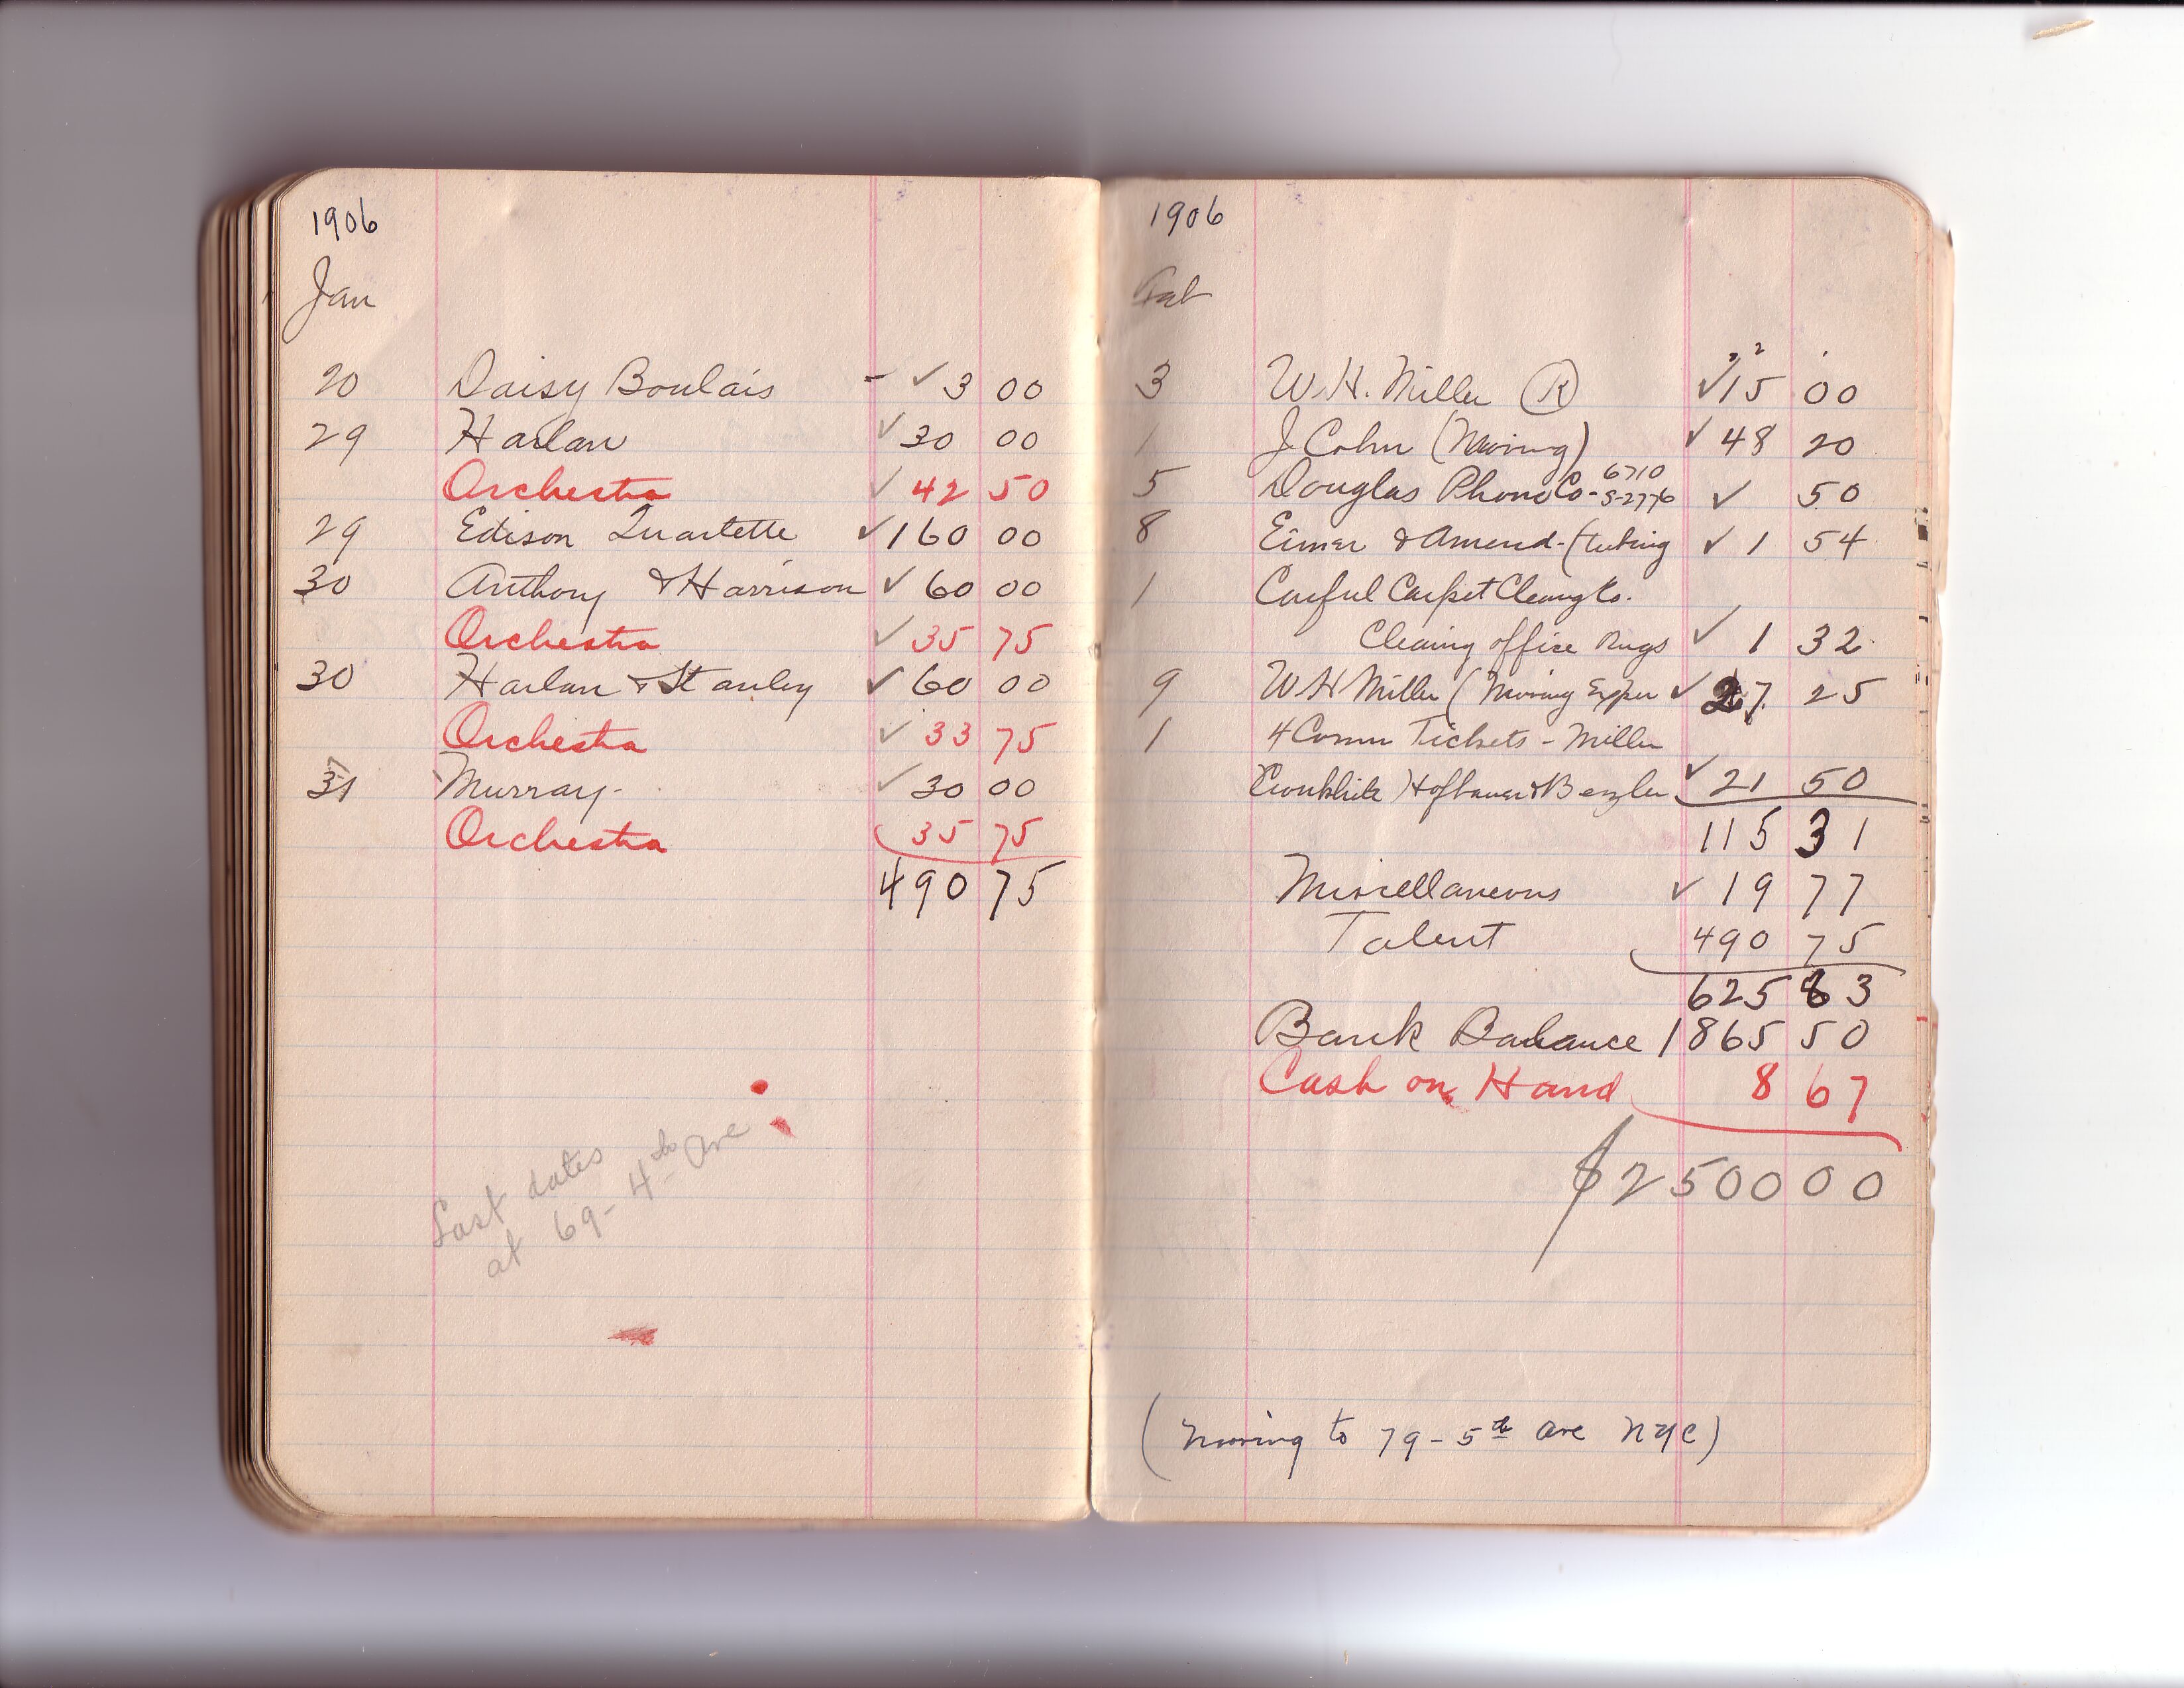 1906
Jan
20 Daisy Boulais - ✓ 3 00
29 Harlan ✓ 30 00
Orchestra ✓ 42 50
29 Edison Quartette ✓ 160 00
30 Anthony & Harrison ✓ 60 00
Orchestra ✓ 35 75
30 Harlan & Stanley ✓ 60 00
Orchestra ✓ 33 75
31 Murray - ✓ 30 00
Orchestra 35 75
490 75
Last dates
at 69 - 4th Ave
1906
Feb
3 W.H. Miller (R) ✓ 15 00
1 J Cohn (Moving) ✓ 48 20
5 Douglas Phono Co - 6710 ✓ 50
8 Eimer & Amend - (tubing ✓ 1 54
1 Careful Carpet Cleang Co.
Cleaing office Rugs ✓ 1 32
9 W H Miller (Moving Expen ✓ 27 25
1 4 Comm Tickets - Miller
Cronkhite Hofbauer & Benzler ✓ 21 50
115 31
Miscellaneous ✓ 19 77
Talent 490 75
625 83
Bank Balance 1865 50
Cash on Hand 8 67
$2500 00
(Moving to 79 - 5th Ave NYC)